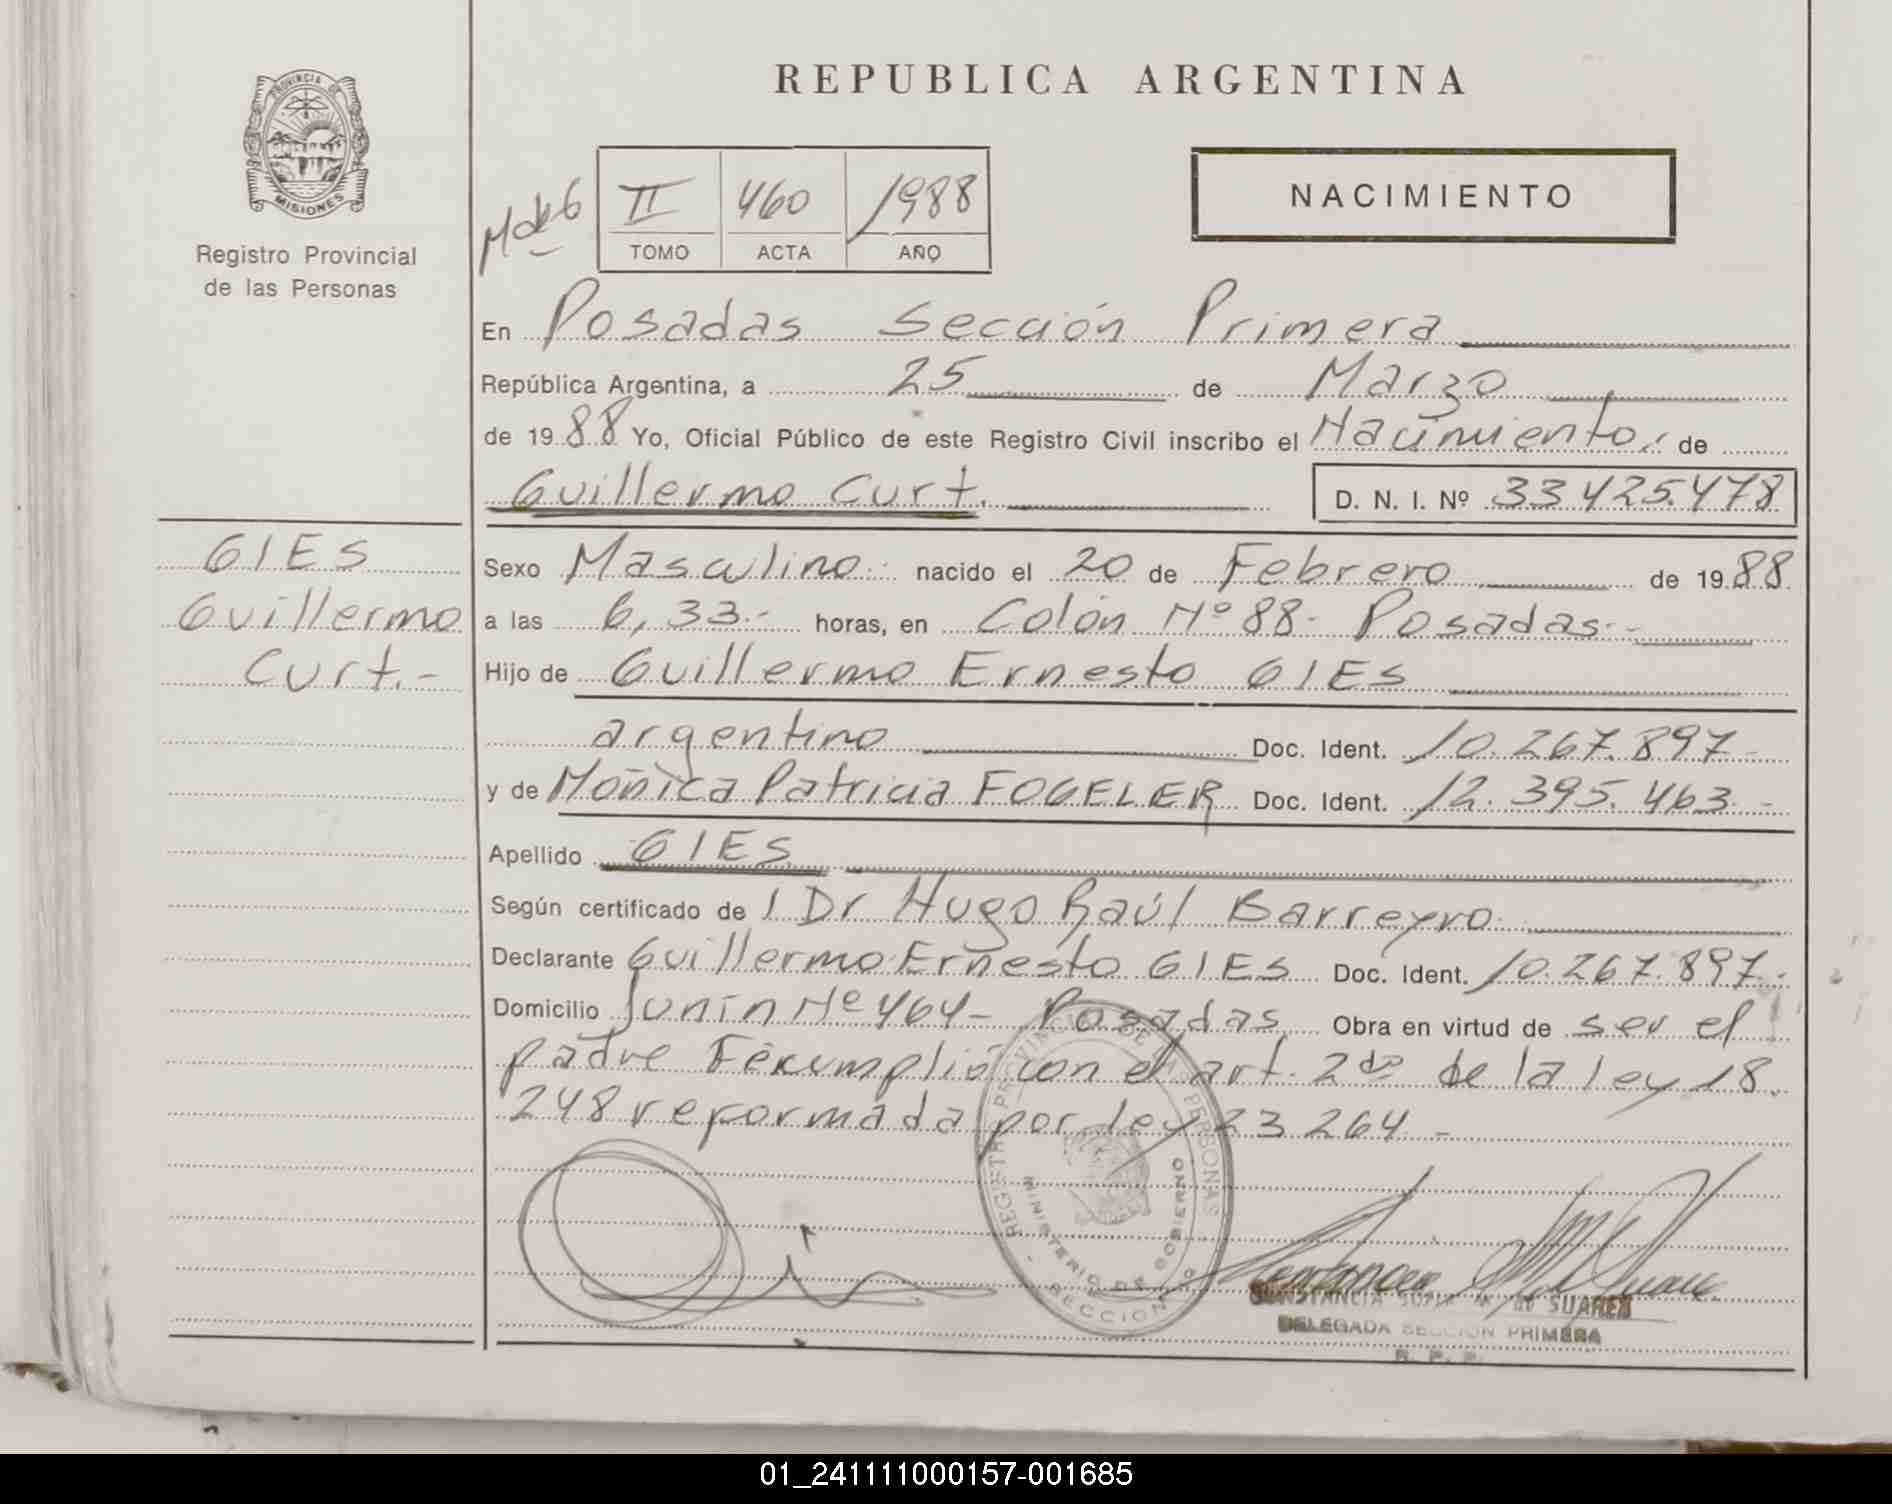 REPUBLICA ARGENTINA
PROVINCIA DE
MISIONES
Registro Provincial
de las Personas
II 460 1988
TOMO ACTA AÑO
NACIMIENTO
En Posadas Sección Primera
República Argentina, a 25 de Marzo
de 1988 Yo, Oficial Público de este Registro Civil inscribo el Nacimiento.- de
Guillermo Curt.
D. N. I. Nº 33.425.478
GIES
Guillermo
Curt.-
Sexo Masculino.- nacido el 20 de Febrero de 1988
a las 6,33.- horas, en Colón Nº 88- Posadas.-
Hijo de Guillermo Ernesto GIES
argentino Doc. Ident. 10.267.897-
y de Mónica Patricia FOGELER Doc. Ident. 12.395.463.-
Apellido GIES
Según certificado de 1 Dr Hugo Raúl Barreyro
Declarante Guillermo Ernesto GIES Doc. Ident. 10.267.897.-
Domicilio Junín Nº 464- Posadas Obra en virtud de ser el
padre cumplió con el art. 2do de la ley 18.
248 reformada por ley 23264-
REGISTRO PROVINCIAL DE LAS PERSONAS
MINISTERIO DE GOBIERNO
SECCION
CONSTANCIA SUAREZ
DELEGADA SECCION PRIMERA
R. P. P.
01_241111000157-001685